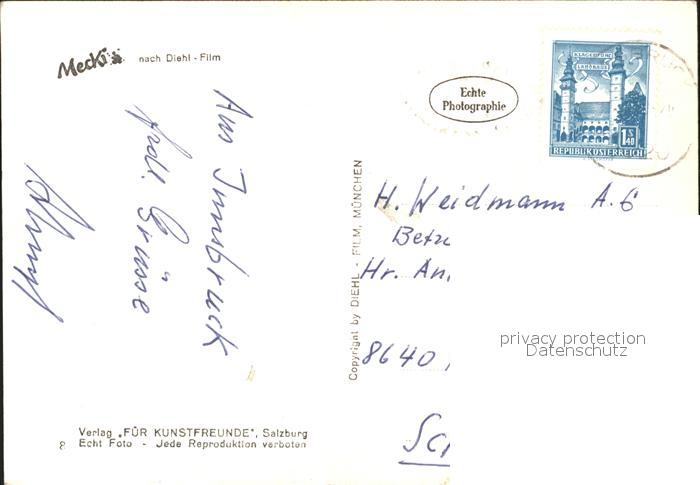 Mecki's nach Diehl - Film
Echte
Photographie
KLAGENFURT
LANDHAUS
1.40 S
REPUBLIK ÖSTERREICH
Aus Innsbruck
frdl. Grüsse
Copyright by DIEHL - FILM, MÜNCHEN
H. Weidmann A.G
Betr
Hr. An.
8640
Sc
privacy protection
Datenschutz
Verlag „FÜR KUNSTFREUNDE", Salzburg
8 Echt Foto - Jede Reproduktion verboten